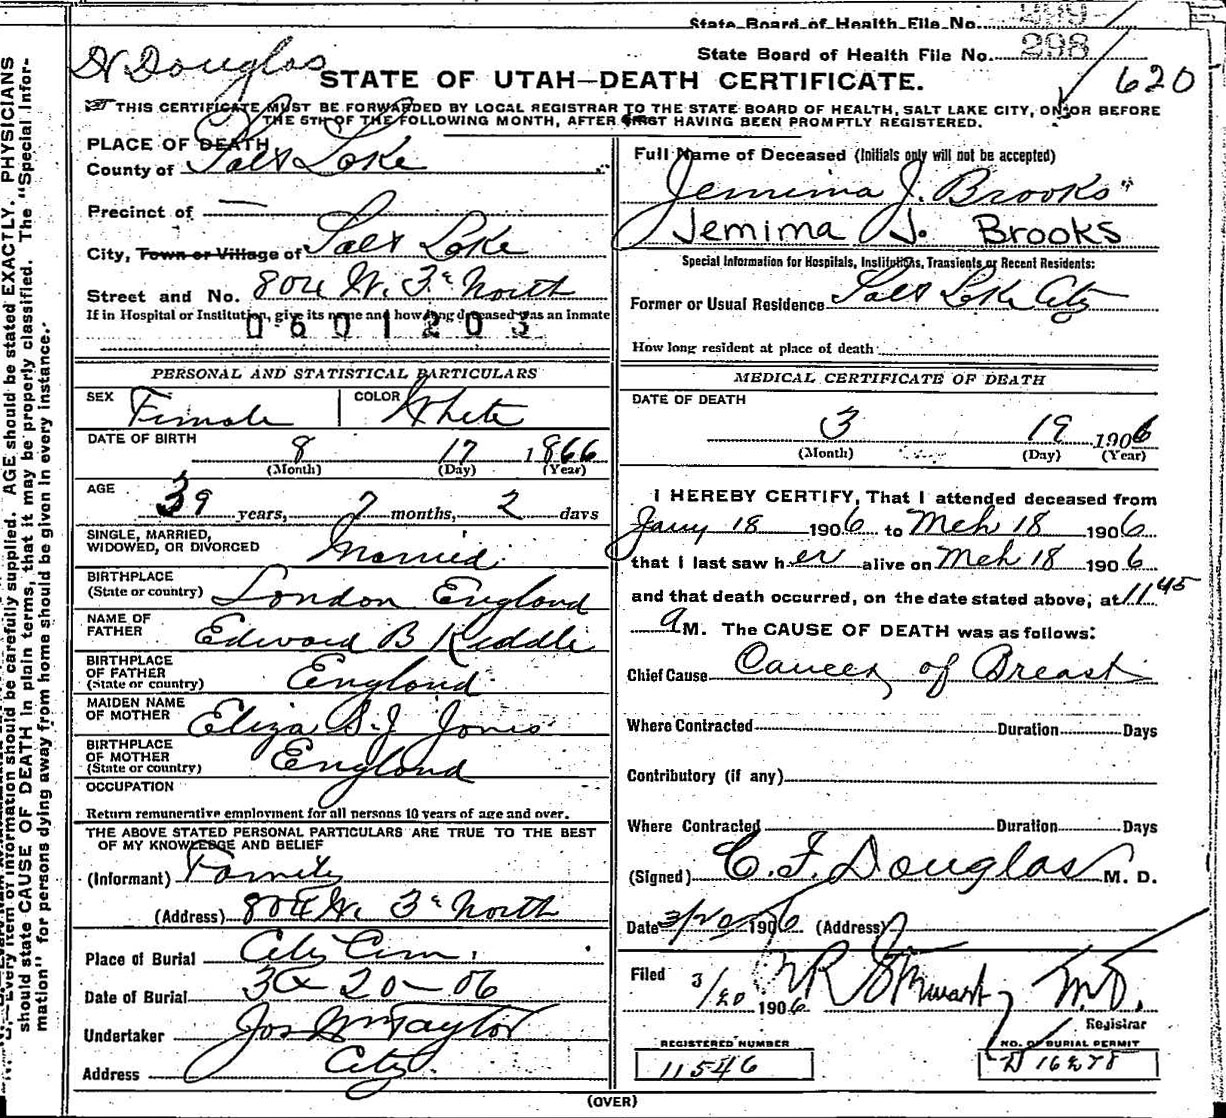 State Board of Health File No. 299
State Board of Health File No. 298
Dr Douglas
620
STATE OF UTAH—DEATH CERTIFICATE.
THIS CERTIFICATE MUST BE FORWARDED BY LOCAL REGISTRAR TO THE STATE BOARD OF HEALTH, SALT LAKE CITY, ON OR BEFORE
THE 5TH OF THE FOLLOWING MONTH, AFTER FIRST HAVING BEEN PROMPTLY REGISTERED.
PLACE OF DEATH
County of Salt Lake
Precinct of —
City, Town or Village of Salt Lake
Street and No. 804 W. 3d North
If in Hospital or Institution, give its name and how long deceased was an inmate
0601203
PERSONAL AND STATISTICAL PARTICULARS
SEX Female COLOR White
DATE OF BIRTH 8 17 1866
(Month) (Day) (Year)
AGE 39 years, 7 months, 2 days
SINGLE, MARRIED,
WIDOWED, OR DIVORCED Married
BIRTHPLACE
(State or country) London England
NAME OF
FATHER Edward B Kiddle
BIRTHPLACE
OF FATHER
(State or country) England
MAIDEN NAME
OF MOTHER Eliza S.J Jones
BIRTHPLACE
OF MOTHER
(State or country) England
OCCUPATION
Return remunerative employment for all persons 10 years of age and over.
THE ABOVE STATED PERSONAL PARTICULARS ARE TRUE TO THE BEST
OF MY KNOWLEDGE AND BELIEF
(Informant) Family
(Address) 804 W. 3d North
Place of Burial City Cem.
Date of Burial 3-20-06
Undertaker Jos Wm Taylor
Address City.
Full Name of Deceased (Initials only will not be accepted)
Jemima J. Brooks
Jemima J. Brooks
Special Information for Hospitals, Institutions, Transients or Recent Residents:
Former or Usual Residence Salt Lake City
How long resident at place of death
MEDICAL CERTIFICATE OF DEATH
DATE OF DEATH
3 19 1906
(Month) (Day) (Year)
I HEREBY CERTIFY, That I attended deceased from
Jany 18 1906 to Mch 18 1906
that I last saw her alive on Mch 18 1906
and that death occurred, on the date stated above, at 11 45
a M. The CAUSE OF DEATH was as follows:
Chief Cause Cancer of Breast
Where Contracted Duration Days
Contributory (if any)
Where Contracted Duration Days
(Signed) C. F. Douglas M. D.
Date 3/20 1906 (Address)
Filed 3/20 1906 Stewart M.D.
Registrar
REGISTERED NUMBER
11546
NO. OF BURIAL PERMIT
(OVER)
Every item of information should be carefully supplied. AGE should be stated EXACTLY. PHYSICIANS
should state CAUSE OF DEATH in plain terms, that it may be properly classified. The "Special Infor-
mation" for persons dying away from home should be given in every instance.